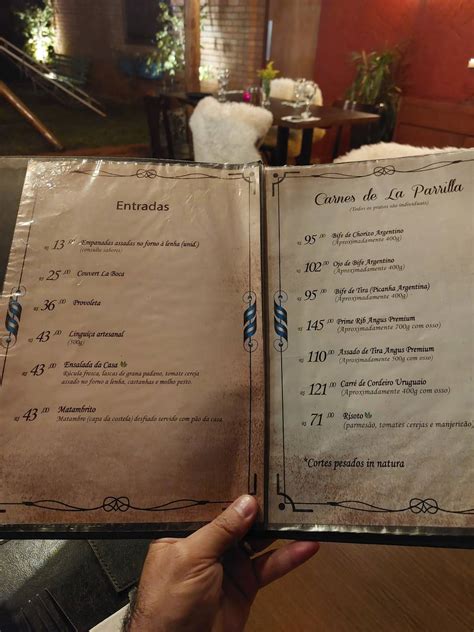 Entradas
R$ 13,00 Empanadas assadas no forno à lenha (unid.)
(consulte sabores)
R$ 25,00 Couvert La Boca
R$ 36,00 Provoleta
R$ 43,00 Linguiça artesanal
(300g)
R$ 43,00 Ensalada da Casa
Rúcula fresca, lascas de grana padano, tomate cereja
assado no forno à lenha, castanhas e molho pesto.
R$ 43,00 Matambrito
Matambre (capa da costela) desfiado servido com pão da casa.
Carnes de La Parrilla
(Todos os pratos são individuais)
R$ 95,00 Bife de Chorizo Argentino
(Aproximadamente 400g)
R$ 102,00 Ojo de Bife Argentino
(Aproximadamente 400g)
R$ 95,00 Bife de Tira (Picanha Argentina)
(Aproximadamente 400g)
R$ 145,00 Prime Rib Angus Premium
(Aproximadamente 700g com osso)
R$ 110,00 Assado de Tira Angus Premium
(Aproximadamente 500g com osso)
R$ 121,00 Carré de Cordeiro Uruguaio
(Aproximadamente 400g com osso)
R$ 71,00 Risoto
(parmesão, tomates cerejas e manjericão,
*Cortes pesados in natura